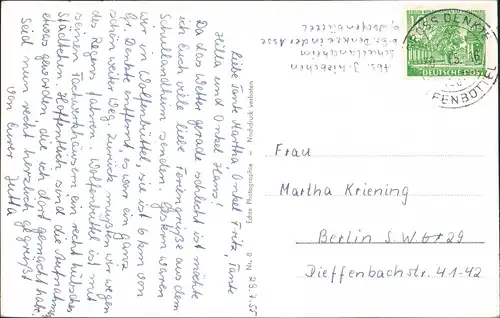 Abs. J. Kriebchen
Schullandheim
Gr. Denkte an der Asse
b. Wolfenbüttel
GROSS DENKTE
WOLFENBÜTTEL
DEUTSCHE POST
Liebe Tante Martha Onkel Fritz, Tante
Hilla und Onkel Hans!
Da das Wetter gerade schlecht ist möchte
ich Euch viele liebe Feriengrüße aus dem
Schullandheim senden. Gestern waren
wir in Wolfenbüttel, sie ist 6 km von
Gr. Denkte entfernt, es war ein ganz
schön weiter Weg. Zurück mußten wir wegen
des Regens fahren. Wolfenbüttel ist mit
seinen Fachwerkhäusern ein recht hübsches
Städtchen. Hoffentlich sind die Aufnahmen
etwas geworden, die ich dort gemacht habe.
Seid nun recht herzlich gegrüßt
von Eurer Jutta
29.7.55
Echte Photographie - Nachdruck verboten
Frau
Martha Kriening
Berlin S.W. 29
Dieffenbachstr. 41-42